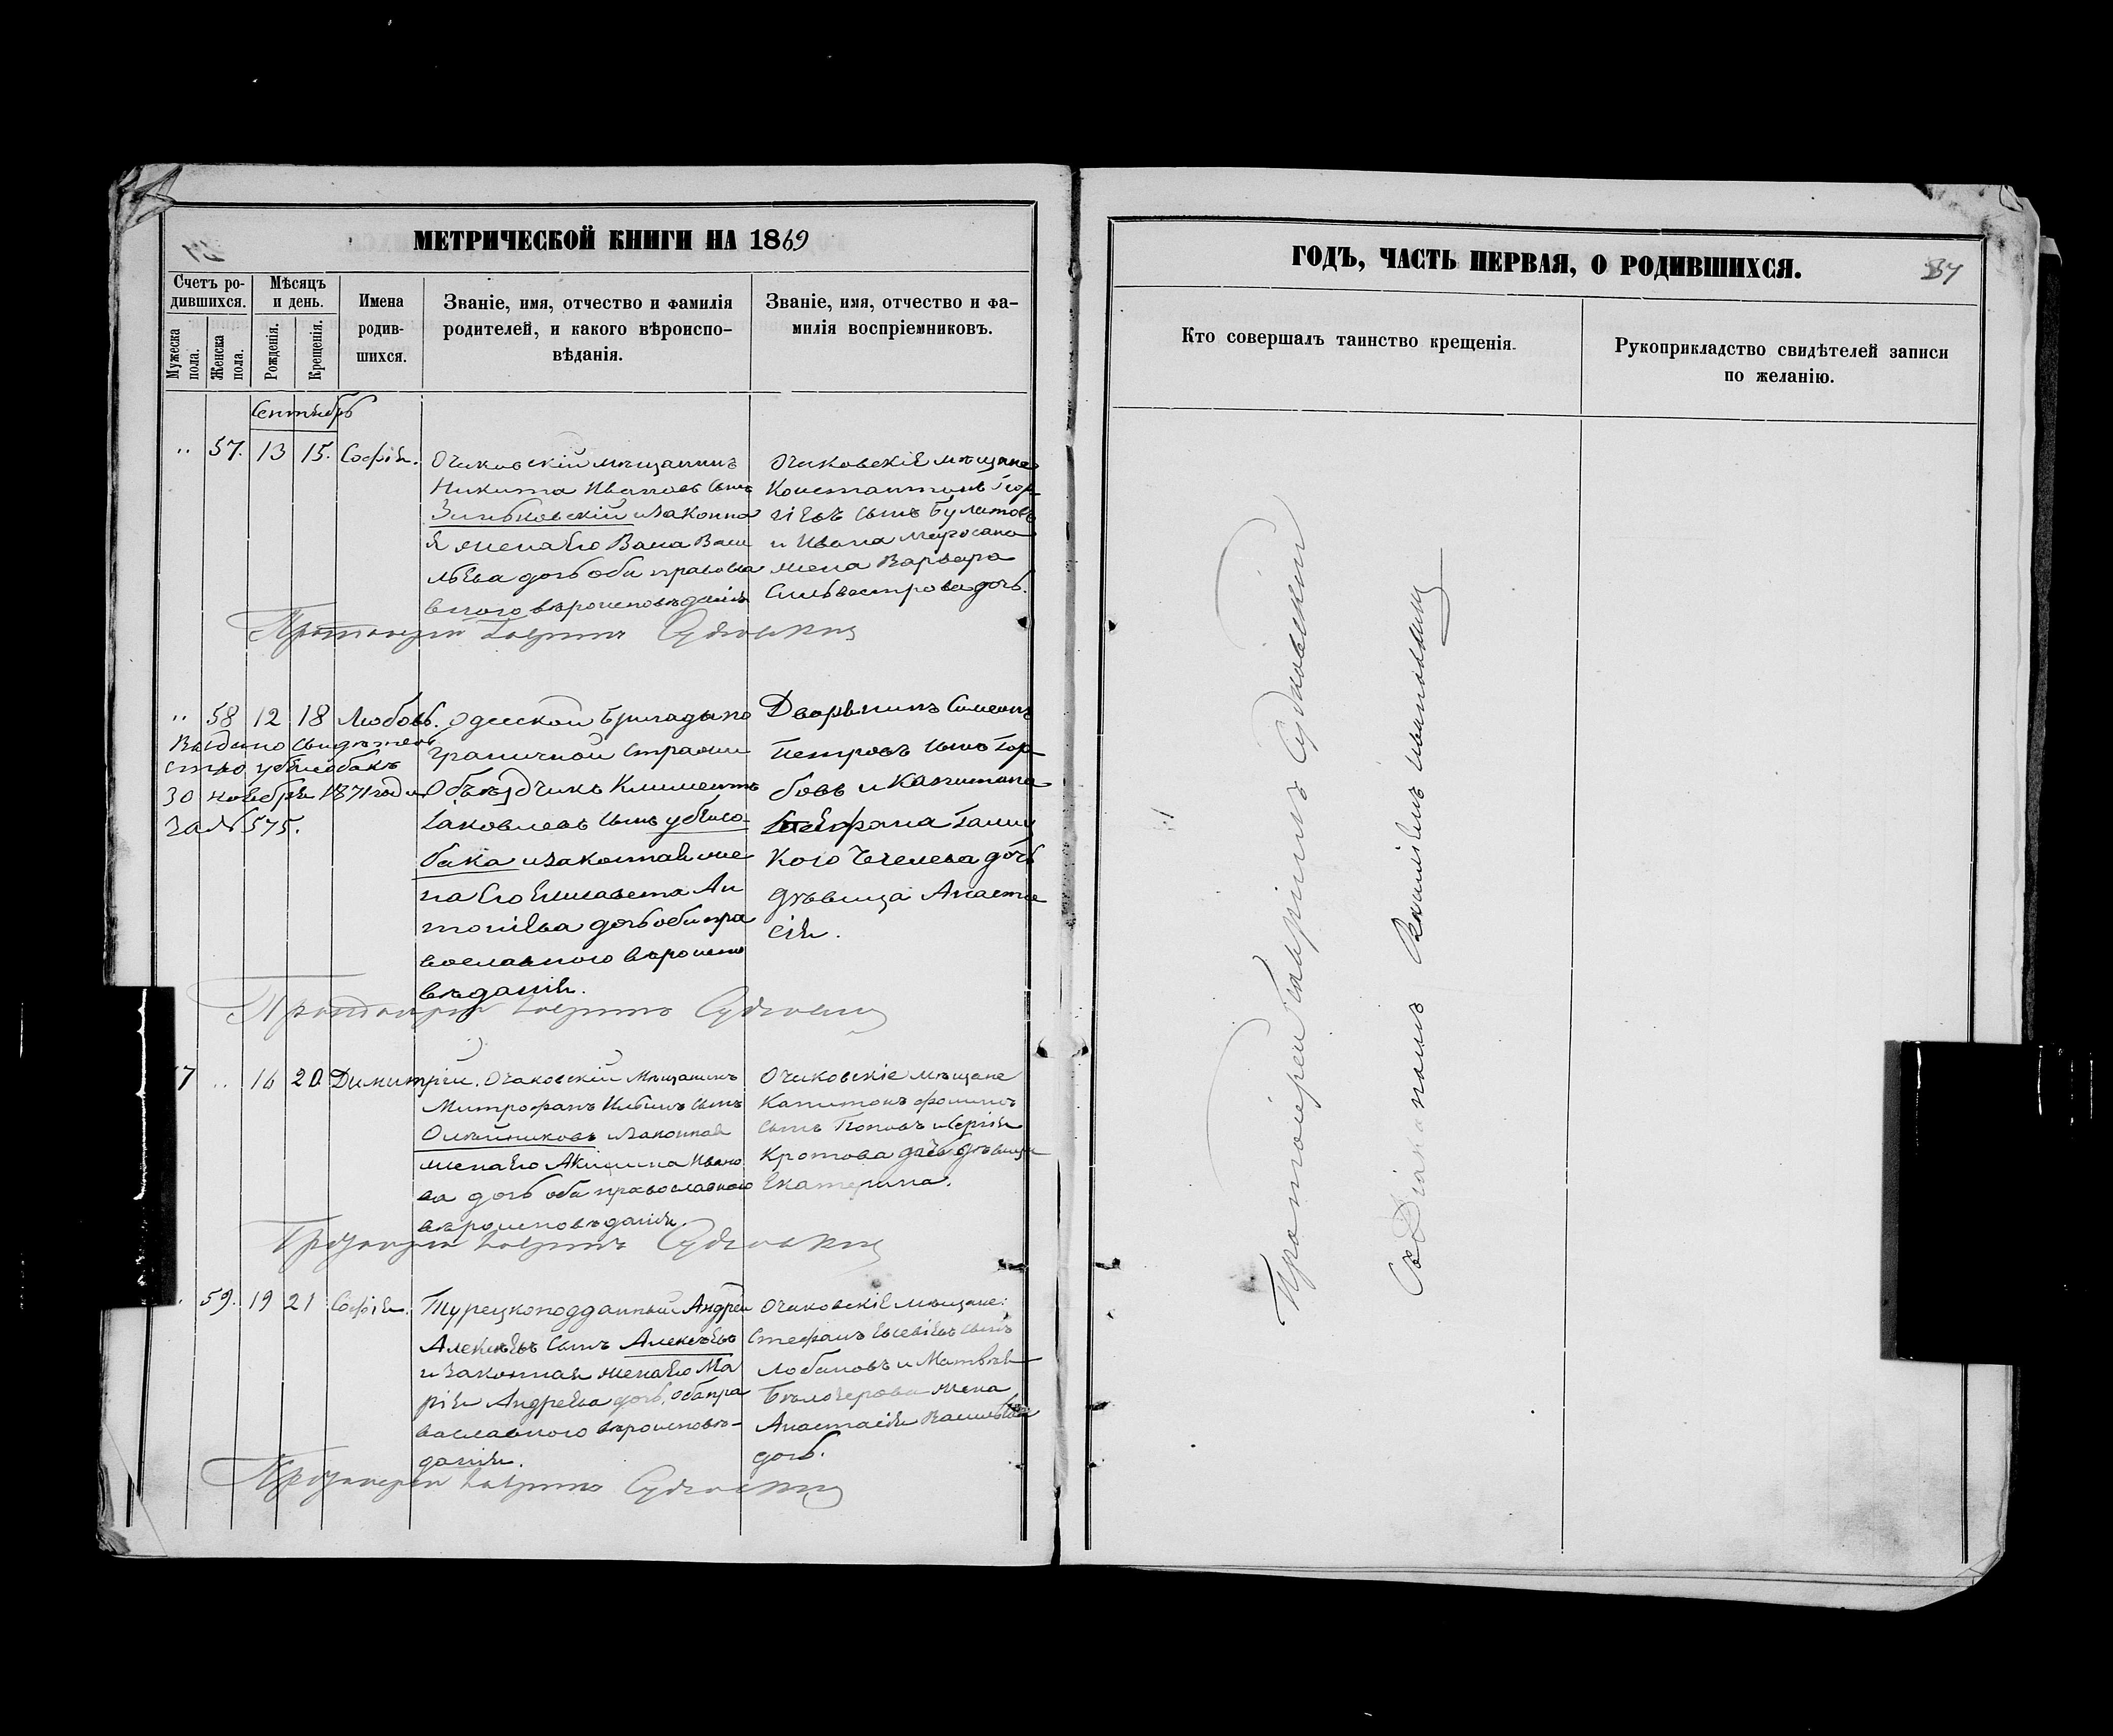 МЕТРИЧЕСКОЙ КНИГИ НА 1869
Счетъ родившихся.
Мужеска пола.
Женска пола.
Мѣсяцъ и день.
Рожденія.
Крещенія.
Имена родившихся.
Званіе, имя, отчество и фамилія
родителей, и какого вѣроиспо-
вѣданія.
Званіе, имя, отчество и фа-
милія воспріемниковъ.
Сентябрь
57. 13 15. Софія.
Очаковскій мѣщанинъ
Никита Ивановъ сынъ
Зинъковскій и законна
я жена его Васи
льева дочь оба правосла
внаго вѣроисповѣданія
Очаковскіе мѣщане
Константинъ Геор
гіевъ сынъ Булатовъ
и Ивана жена Варвара
Сильвестрова дочь.
Протоіерей Гавріилъ Судковскій
58 12 18 Любовь.
Выдано свидѣтель
ство
30 ноября 1871 года
за № 575.
Одесской бригады по
граничной стражи
Объѣздчикъ Климентъ
Іаковлевъ сынъ Убѣйсо-
бака и законная же
на его Елисавета Ан
тоніева дочь оба пра
вославнаго вѣроиспо
вѣданія.
Дворянинъ Симеонъ
Петровъ сынъ Гор
бовъ и Капитана
Стефана
дочь
дѣвица Анаста
сія.
Протоіерей Гавріилъ Судковскій
7 16 20 Димитрій.
Очаковскій мѣщанинъ
Митрофанъ Ильинъ сынъ
Олейниковъ и законная
жена его Акилина Ивано
ва дочь оба православнаго
вѣроисповѣданія.
Очаковскіе мѣщане
Капитонъ Фоминъ
сынъ Поповъ и Сергія
Кротова дочь дѣвица
Екатерина.
Протоіерей Гавріилъ Судковскій
59. 19 21 Софія.
Турецкоподданный Андрей
Алексѣевъ сынъ Алексѣевъ
и законная жена его Ма
рія Андреева дочь, оба пра
вославнаго вѣроисповѣ-
данія.
Очаковскіе мѣщане:
Стефанъ Евсевіевъ сынъ
Лобановъ и Матвѣя
Бѣлозерова жена
Анастасія Васильева
дочь.
Протоіерей Гавріилъ Судковскій
ГОДЪ, ЧАСТЬ ПЕРВАЯ, О РОДИВШИХСЯ.
34
Кто совершалъ таинство крещенія.
Рукоприкладство свидѣтелей записи
по желанію.
Протоіерей Гавріилъ Судковскій
съ Діакономъ